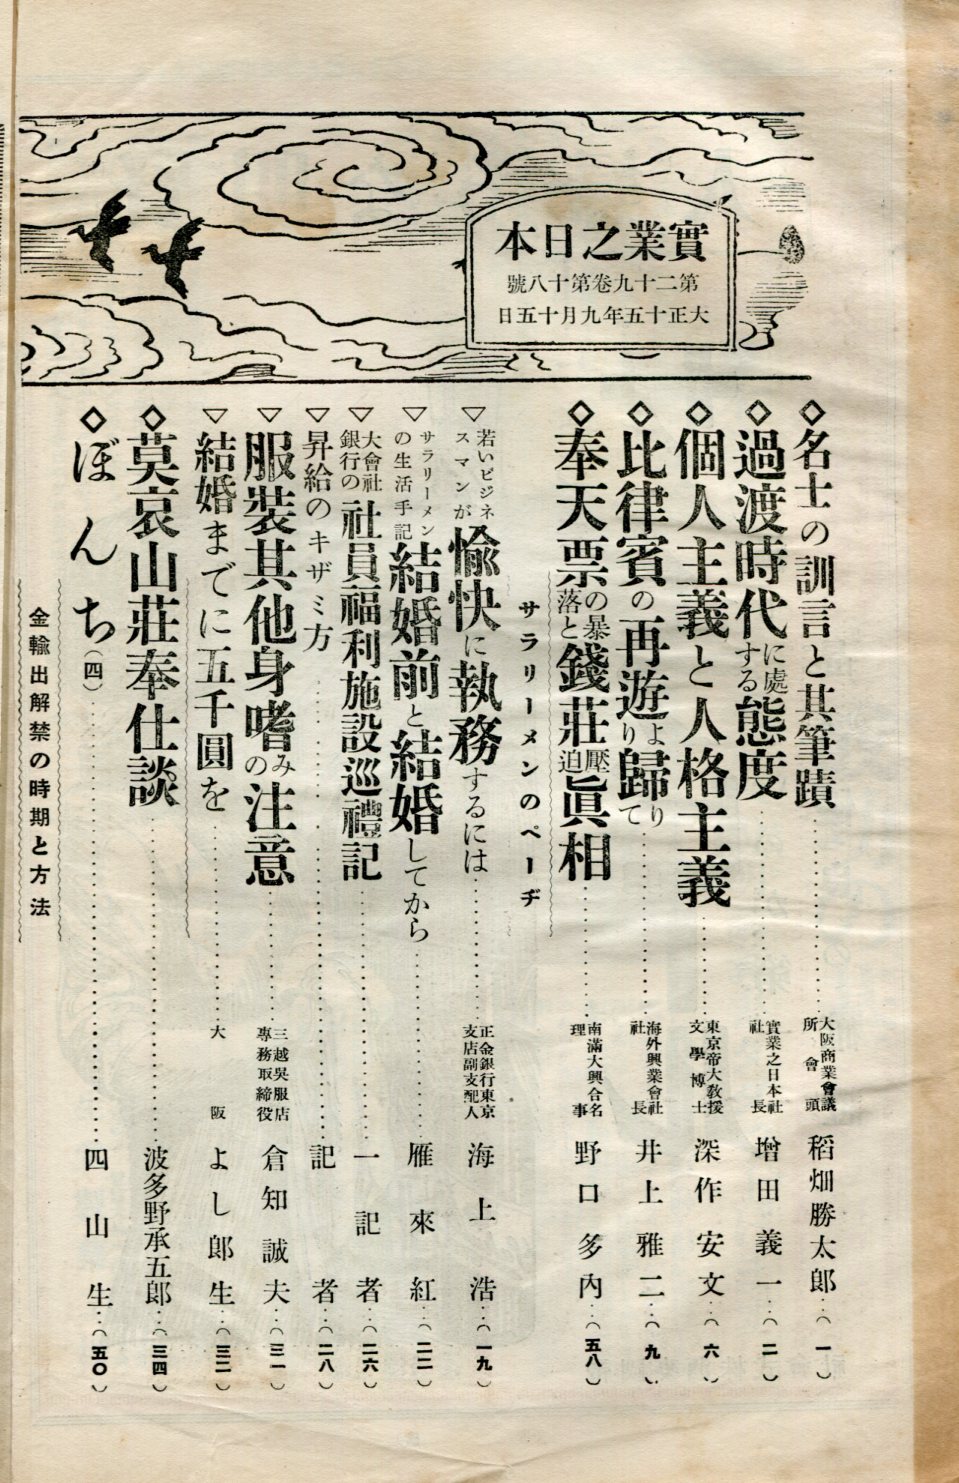 實業之日本
第二十九卷第十八號
大正十五年九月十五日
◇名士の訓言と其筆蹟…………大阪商業會議所會頭 稻畑勝太郎…(一)
◇過渡時代に處する態度…………實業之日本社社長 增田義一…(二)
◇個人主義と人格主義…………東京帝大教授文學博士 深作安文…(六)
◇比律賓の再遊より歸りて…………海外興業會社社長 井上雅二…(九)
◇奉天票の暴落と錢莊壓迫眞相…………南滿大興合名理事 野口多內…(五八)
サラリーメンのページ
▽若いビジネスマンが愉快に執務するには…………正金銀行東京支店副支配人 海上浩…(一九)
▽サラリーメンの生活手記結婚前と結婚してから…………雁來紅…(二二)
▽大會社銀行の社員福利施設巡禮記…………一記者…(二六)
▽昇給のキザミ方…………記者…(二八)
▽服裝其他身嗜みの注意…………三越吳服店專務取締役 倉知誠夫…(三一)
▽結婚までに五千圓を…………大阪 よし郎生…(三二)
◇莫哀山莊奉仕談…………波多野承五郎…(三四)
◇ぼんち(四)…………四山生…(五〇)
金輸出解禁の時期と方法